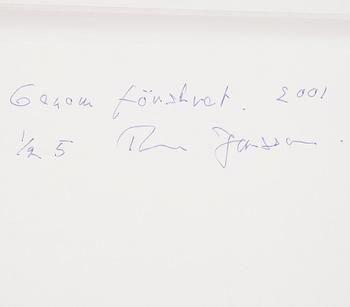 Genom fönstret. 2001
1/25 Tuija Jansson.